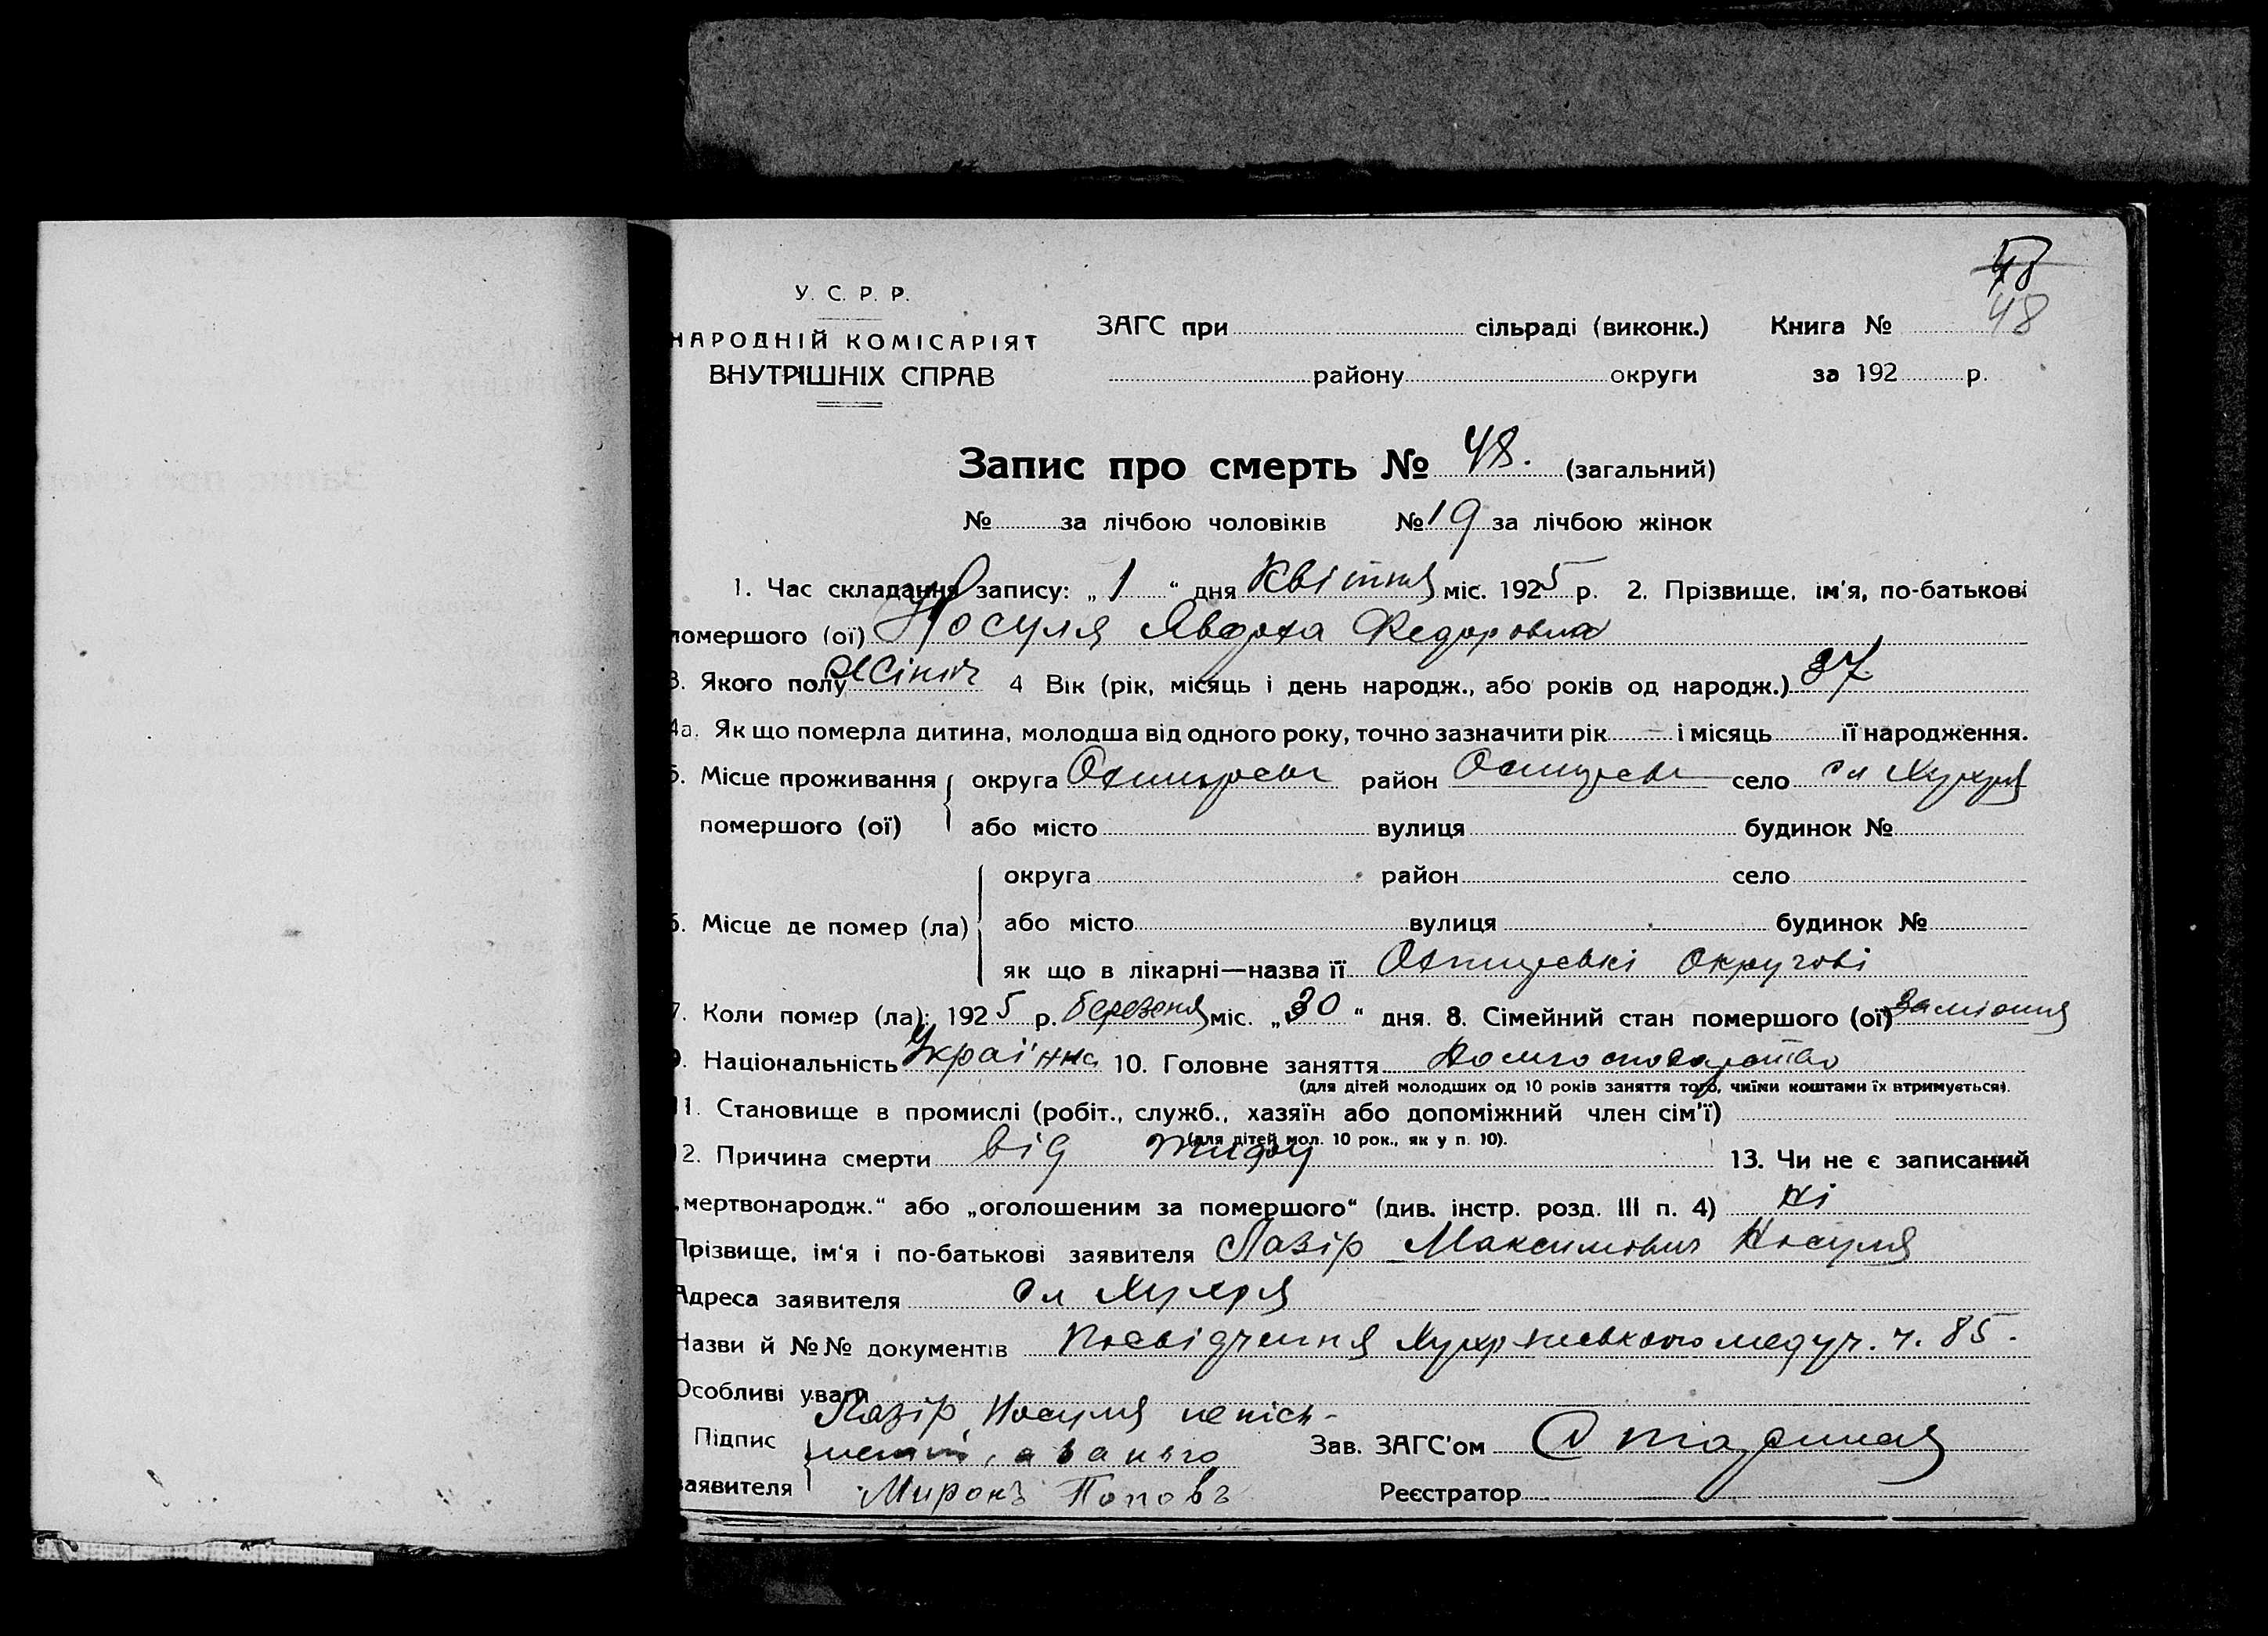 48
48
У. С. Р. Р.
НАРОДНІЙ КОМІСАРІЯТ
ВНУТРІШНІХ СПРАВ
ЗАГС при сільраді (виконк.) Книга №
району округи за 192 р.
Запис про смерть № 48. (загальний)
№ за лічбою чоловіків № 19 за лічбою жінок
1. Час складання запису: „ 1 “ дня Квітня міс. 1925 р. 2. Прізвище, ім'я, по-батькові
помершого (ої) Носуля Явдоха Федоровна
3. Якого полу Жіноч 4 Вік (рік, місяць і день народж., або років од народж.) 37
4а. Як що померла дитина, молодша від одного року, точно зазначити рік — і місяць її народження.
5. Місце проживання округа район село сл Хухря
помершого (ої) або місто вулиця будинок №
округа район село
6. Місце де помер (ла) або місто вулиця будинок №
як що в лікарні—назва її Округові
7. Коли помер (ла): 1925 р. березня міс. „30“ дня. 8. Сімейний стан помершого (ої) Заміжня
9. Національність Украі'нка 10. Головне заняття
(для дітей молодших од 10 років заняття того, чиїми коштами їх втримується).
11. Становище в промислі (робіт., служб., хазяїн або допоміжний член сім'ї)
(для дітей мол. 10 рок., як у п. 10).
12. Причина смерти від тифу 13. Чи не є записаний
„мертвонародж.“ або „оголошеним за помершого“ (див. інстр. розд. III п. 4) ні
Прізвище, ім'я і по-батькові заявителя Лазір Максимович Носуля
Адреса заявителя сл Хухря
Назви й №№ документів Посвідчення медуч. ч. 85.
Особливі уваги
Лазір Носуля непісь-
Підпис менний, а за нього Зав. ЗАГС'ом
заявителя Миронъ Поповъ Реєстратор